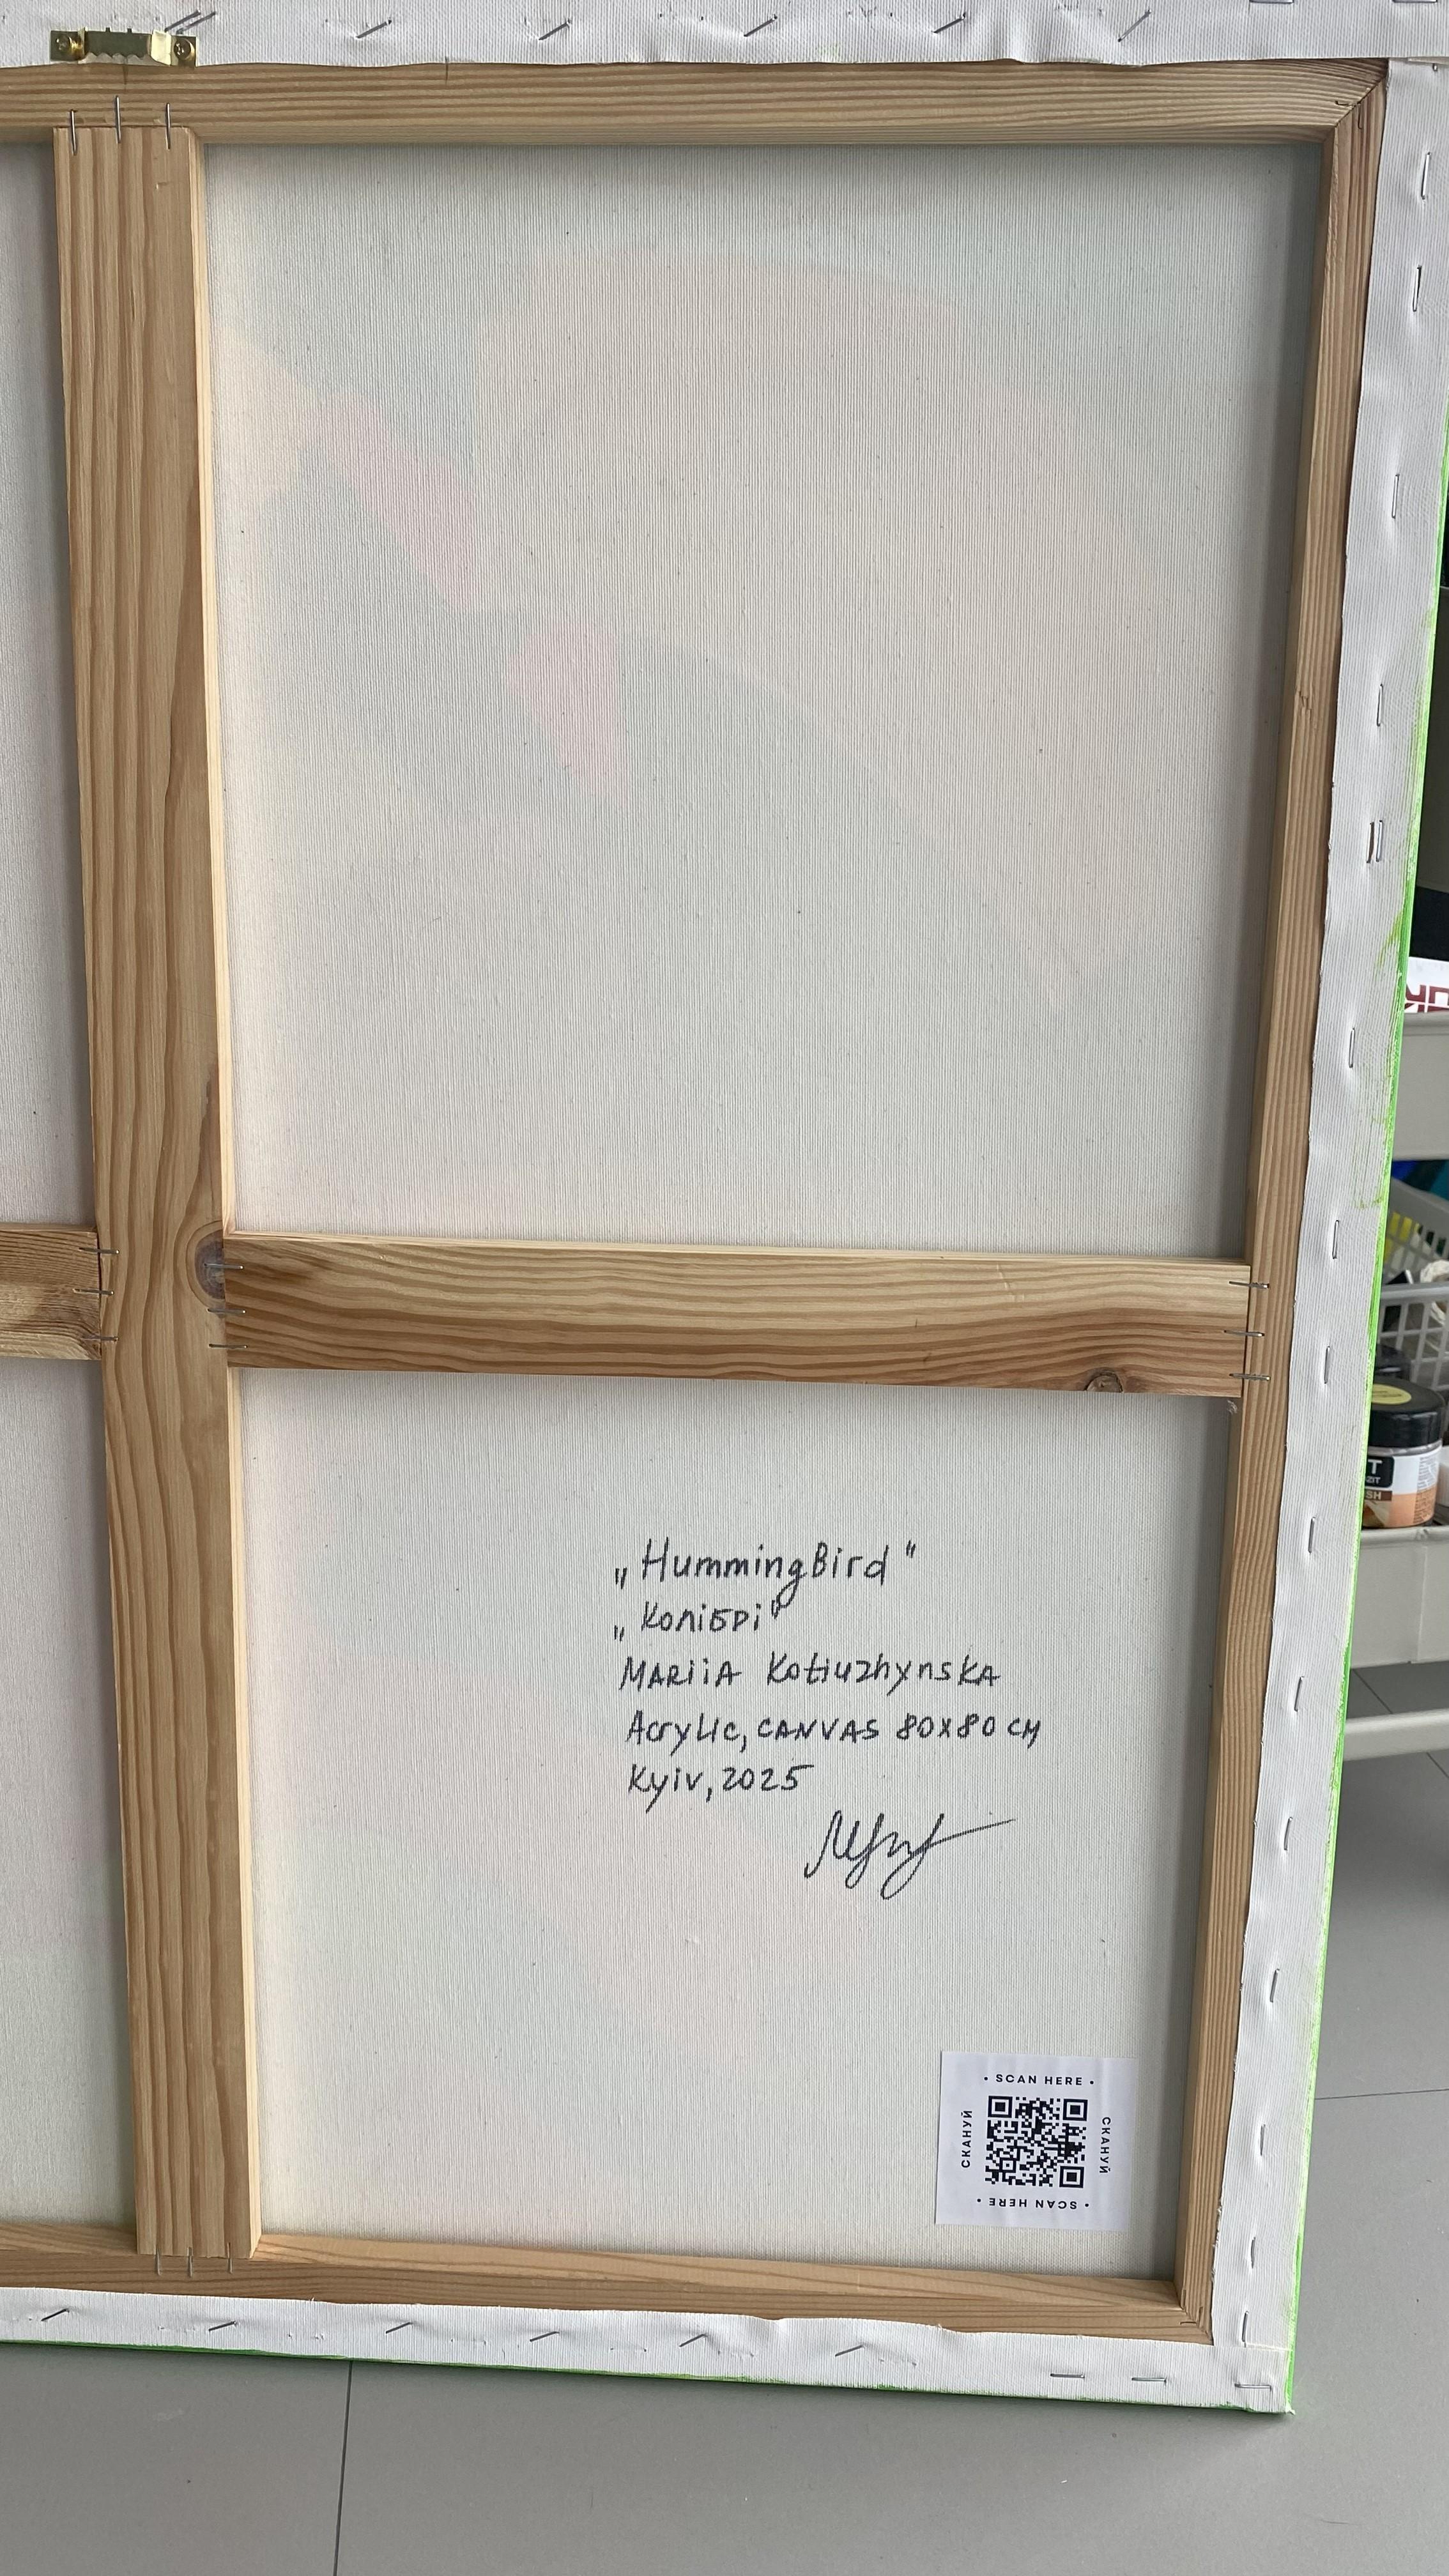 „HummingBird"
„Колібрі"
MARiiA Kotiuzhynska
Acrylic, CANVAS 80x80 CM
Kyiv, 2025
• SCAN HERE •
СКАНУЙ
СКАНУЙ
• SCAN HERE •